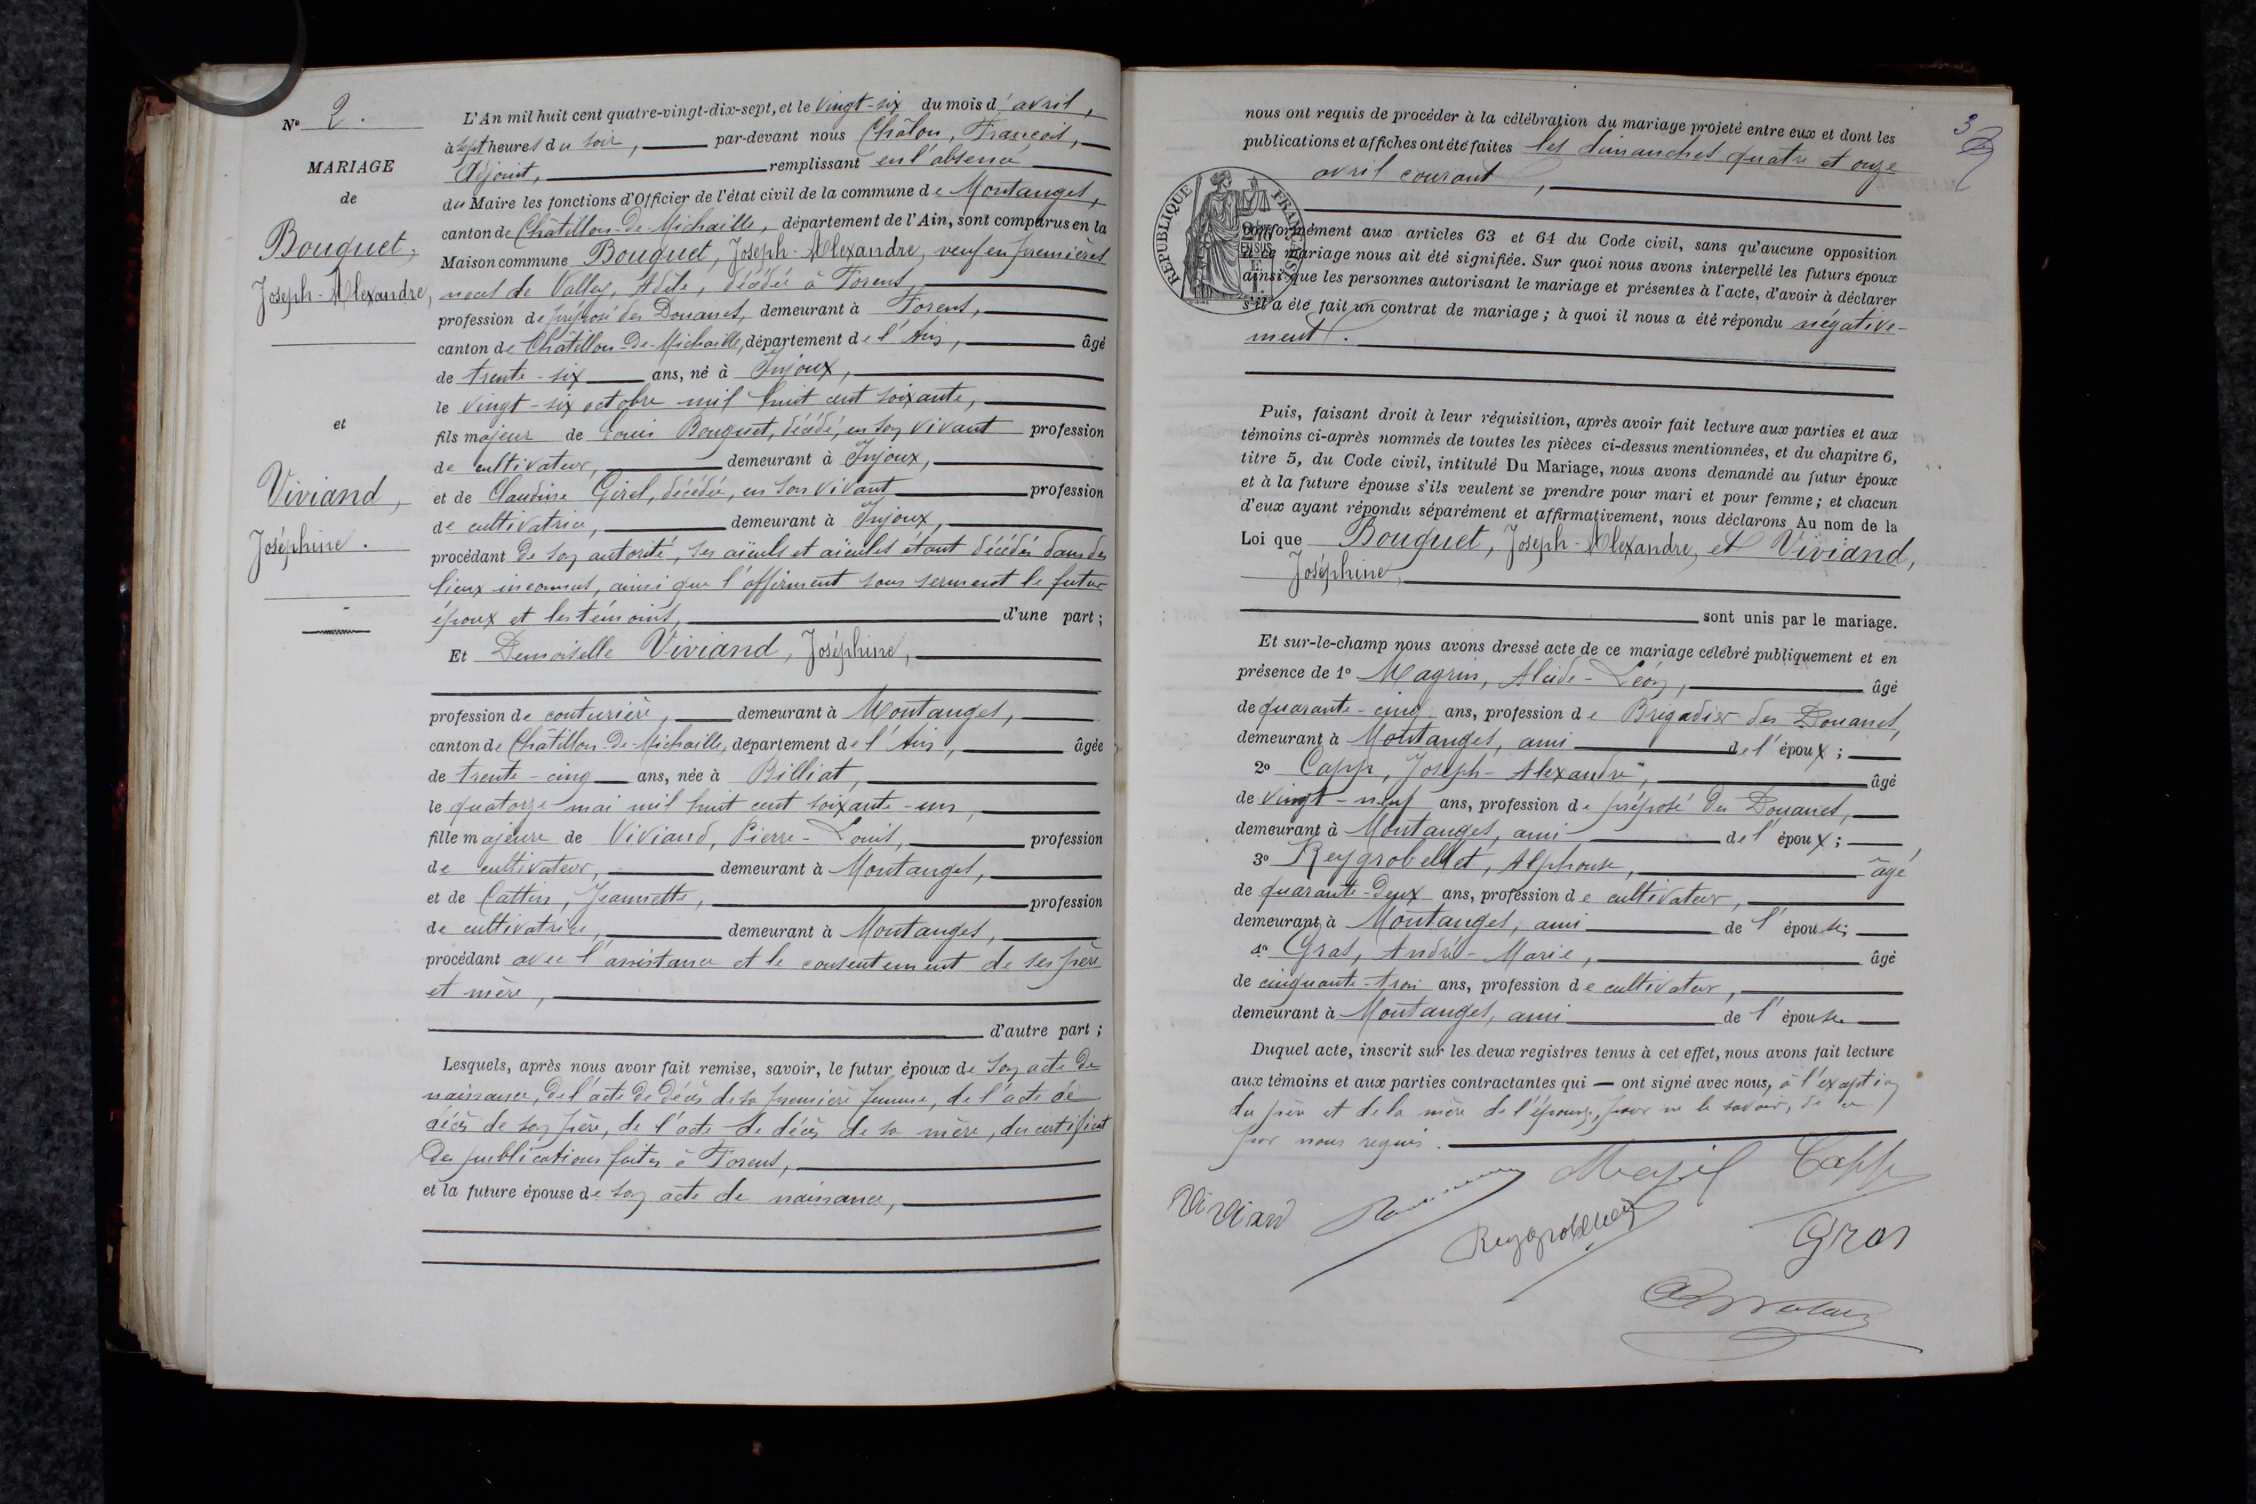 N° 2.
MARIAGE
de
Bouquet,
Joseph-Alexandre,
et
Viviand,
Joséphine.
L'An mil huit cent quatre-vingt-dix-sept, et le vingt-six du mois d'avril,
à sept heures du soir, par-devant nous Châlon, François,
Adjoint, remplissant en l'absence
du Maire les fonctions d'Officier de l'état civil de la commune de Montanges,
canton de Châtillon-de-Michaille, département de l'Ain, sont comparus en la
Maison commune Bouquet, Joseph-Alexandre, veuf en premières
noces de Vallex, Adèle, décédée à Forens,
profession de préposé des Douanes, demeurant à Forens,
canton de Châtillon-de-Michaille, département de l'Ain, âgé
de trente-six ans, né à Injoux,
le vingt-six octobre mil huit cent soixante,
fils majeur de Louis Bouquet, décédé, en son vivant profession
de cultivateur, demeurant à Injoux,
et de Claudine Girel, décédée, en son vivant profession
de cultivatrice, demeurant à Injoux,
procédant de son autorité, ses aïeuls et aïeules étant décédés dans des
lieux inconnus, ainsi que l'affirment sous serment le futur
époux et les témoins, d'une part;
Et Demoiselle Viviand, Joséphine,
profession de couturière, demeurant à Montanges,
canton de Châtillon-de-Michaille, département de l'Ain, âgée
de trente-cinq ans, née à Billiat,
le quatorze mai mil huit cent soixante-un,
fille majeure de Viviand, Pierre-Louis, profession
de cultivateur, demeurant à Montanges,
et de Cattin, Jeannette, profession
de cultivatrice, demeurant à Montanges,
procédant avec l'assistance et le consentement de ses père
et mère,
d'autre part;
Lesquels, après nous avoir fait remise, savoir, le futur époux de son acte de
naissance, de l'acte de décès de sa première femme, de l'acte de
décès de son père, de l'acte de décès de sa mère, du certificat
des publications faites à Forens,
et la future épouse de son acte de naissance,
3
nous ont requis de procéder à la célébration du mariage projeté entre eux et dont les
publications et affiches ont été faites les dimanches quatre et onze
avril courant,
RÉPUBLIQUE FRANÇAISE
conformément aux articles 63 et 64 du Code civil, sans qu'aucune opposition
à ce mariage nous ait été signifiée. Sur quoi nous avons interpellé les futurs époux
ainsi que les personnes autorisant le mariage et présentes à l'acte, d'avoir à déclarer
s'il a été fait un contrat de mariage; à quoi il nous a été répondu négative-
ment.
Puis, faisant droit à leur réquisition, après avoir fait lecture aux parties et aux
témoins ci-après nommés de toutes les pièces ci-dessus mentionnées, et du chapitre 6,
titre 5, du Code civil, intitulé Du Mariage, nous avons demandé au futur époux
et à la future épouse s'ils veulent se prendre pour mari et pour femme; et chacun
d'eux ayant répondu séparément et affirmativement, nous déclarons Au nom de la
Loi que Bouquet, Joseph-Alexandre, et Viviand,
Joséphine,
sont unis par le mariage.
Et sur-le-champ nous avons dressé acte de ce mariage célébré publiquement et en
présence de 1° Magrin, Alcide-Léon, âgé
de quarante-cinq ans, profession de Brigadier des Douanes,
demeurant à Montanges, ami de l'époux;
2° Capp, Joseph-Alexandre, âgé
de vingt-neuf ans, profession de préposé des Douanes,
demeurant à Montanges, ami de l'époux;
3° Reygrobellet, Alphonse, âgé
de quarante-deux ans, profession de cultivateur,
demeurant à Montanges, ami de l'épouse;
4° Gras, André-Marie, âgé
de cinquante-trois ans, profession de cultivateur,
demeurant à Montanges, ami de l'épouse
Duquel acte, inscrit sur les deux registres tenus à cet effet, nous avons fait lecture
aux témoins et aux parties contractantes qui — ont signé avec nous, à l'exception
du père et de la mère de l'épouse, pour ne le savoir, de ce
par nous requis.
Capp
Viviand
Reygrobellet
Gras